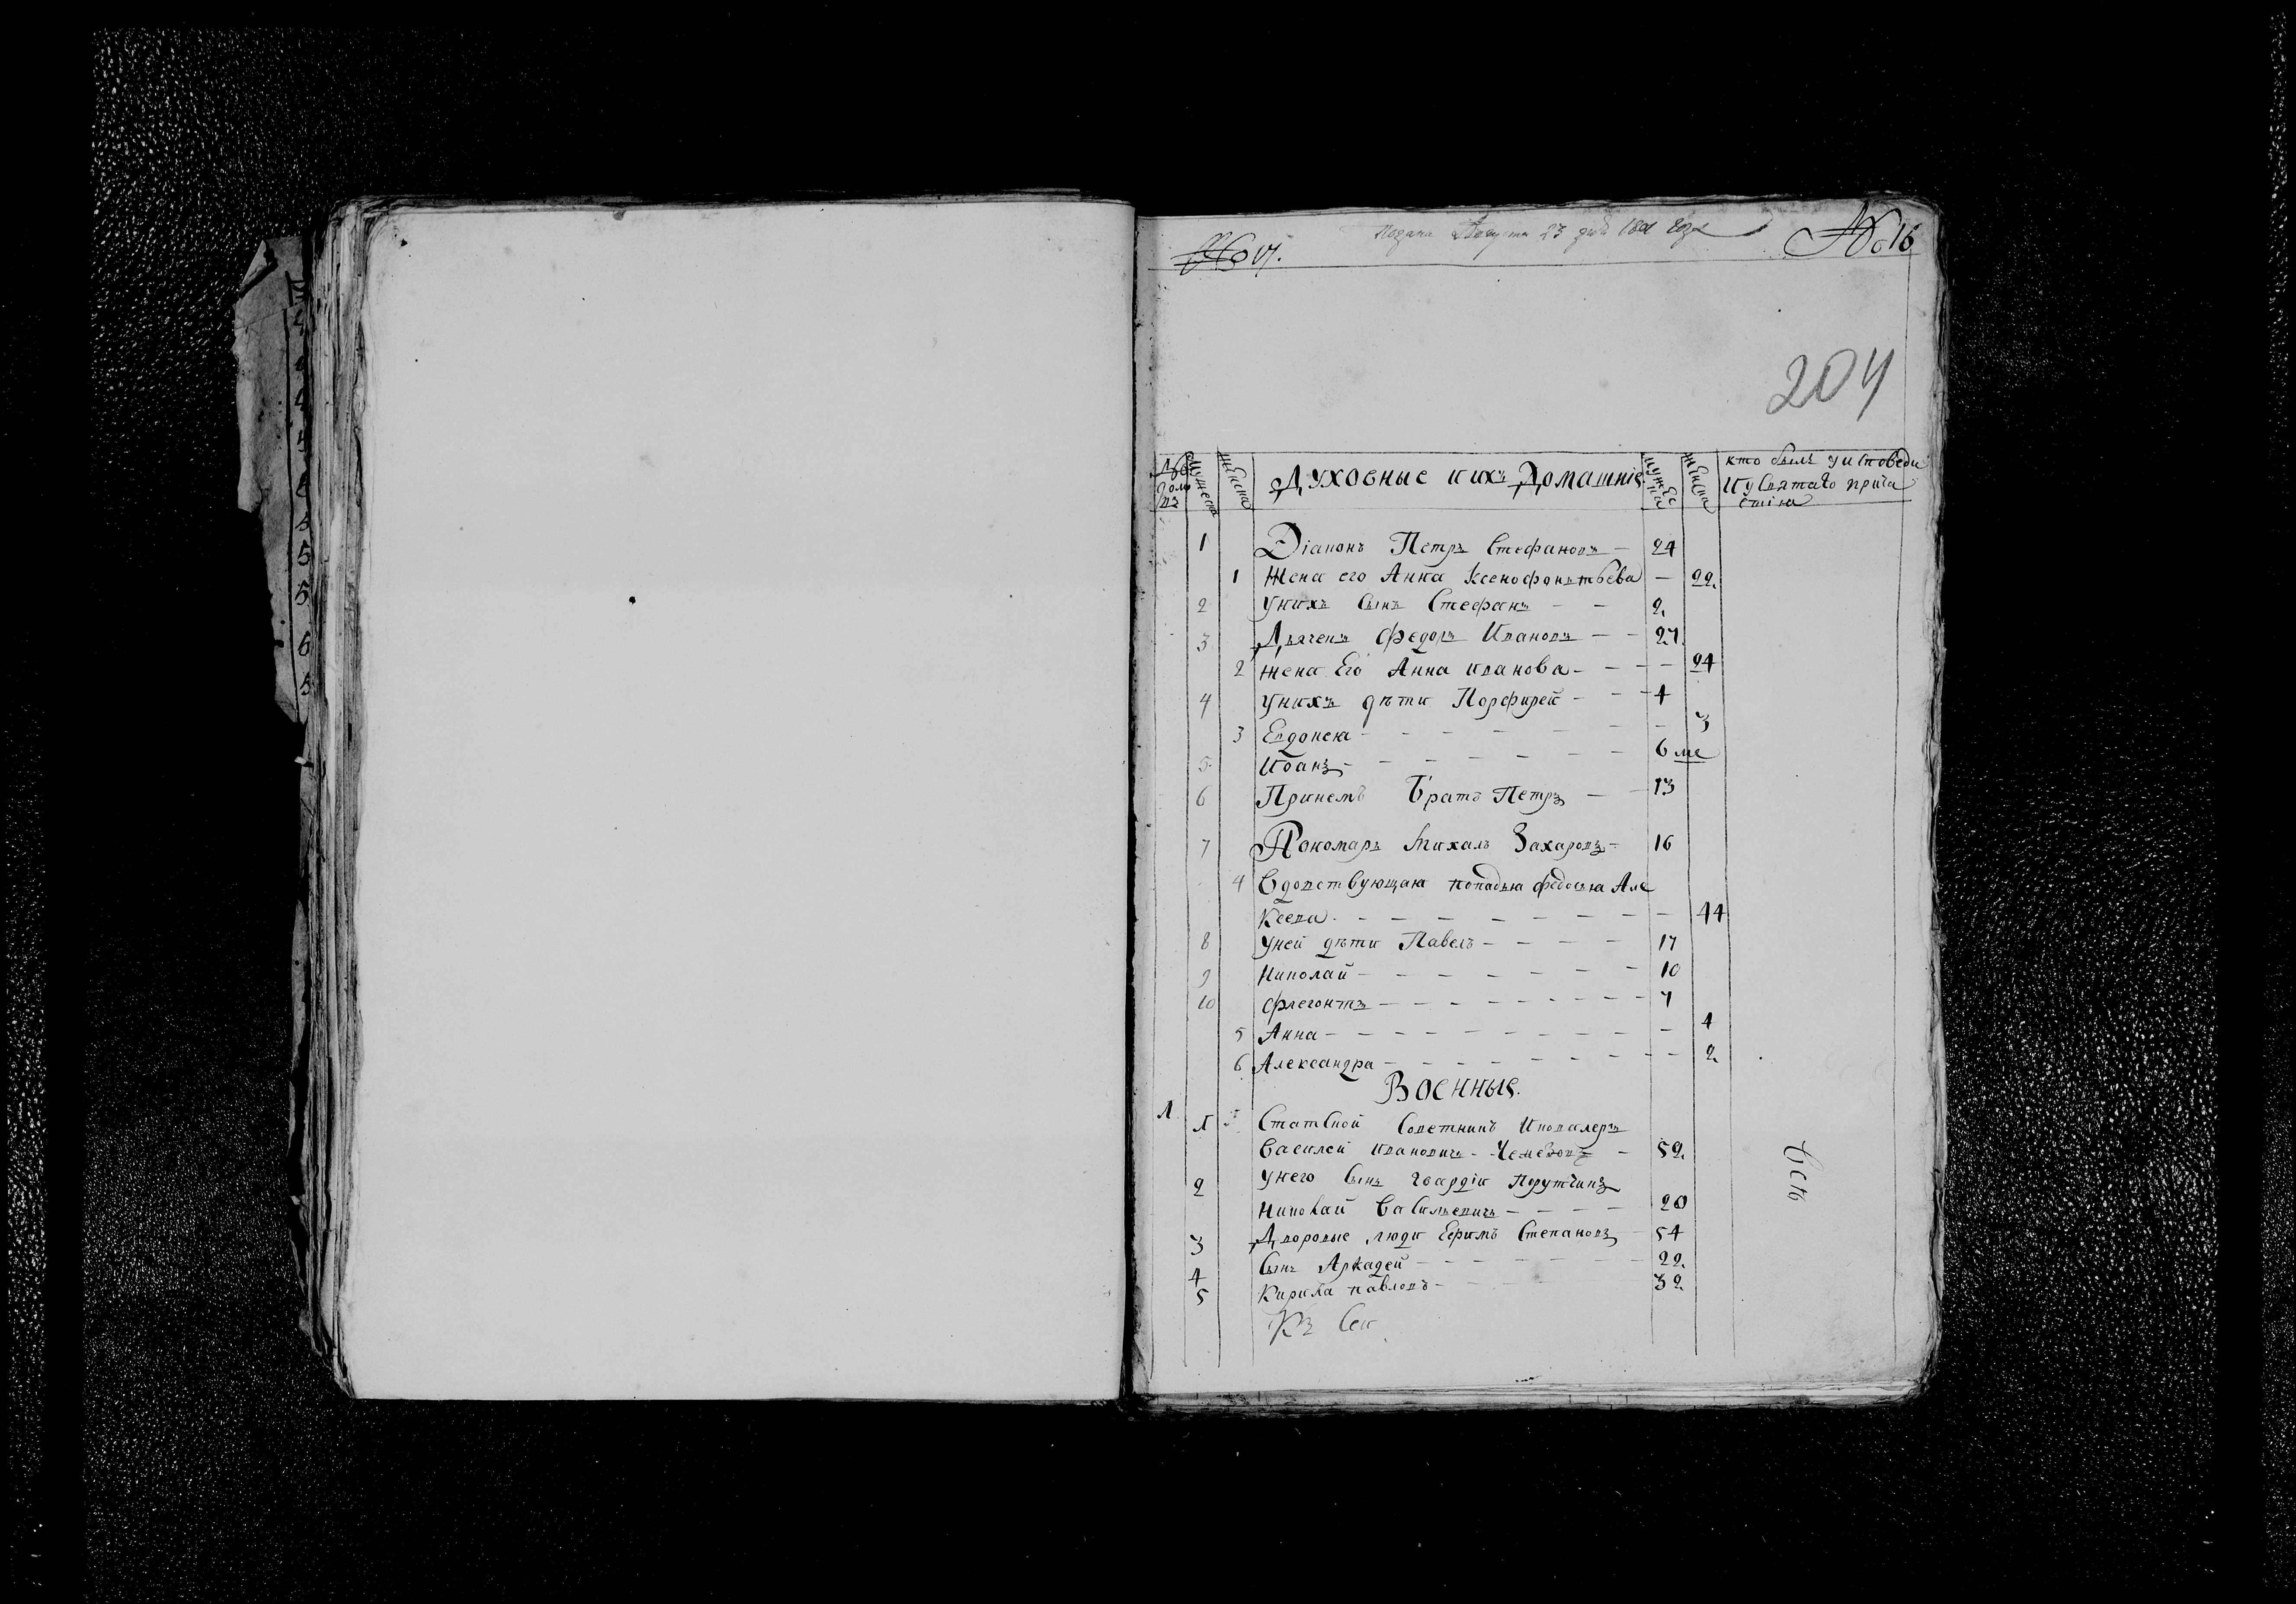 Подана Августа 23 дня 1801 года
№ 17. № 16
204
№ домовъ Мужеска Женска Духовные и ихъ Домашніе мужеска женска кто былъ у исповеди
и у Святаго прича
стія
1 Діаконъ Петръ Стефановъ — 24
1 Жена его Анна Ксенофонтьева — 22.
2 Унихъ сынъ Стефанъ — — 2.
3 Дьячекъ Федоръ Ивановъ — — 27.
2 Жена Его Анна иванова — — — 24
4 Унихъ дѣти Порфирей — — 4
3 Евдокея — — — 3
5 Иванъ — — — 6 ме
6 Принемъ Братъ Петръ — — 13
7 Пономарь Михалъ Захаровъ — 16
4 Вдовствующая попадья федосья Але
ксеева — — — 44
8 Уней дѣти Павелъ — — — 17
9 Николай — — — 10
10 Флегонтъ — — — 7
5 Анна — — — 4
6 Александра — — — 2.
Военные.
1 1 Статской Советникъ Икавалеръ
Василей Ивановичъ — — 52.
2 Унего Сынъ Гвардіи Порутчикъ
Николай Васильевичъ — — — 20
3 Дворовые люди Ефимъ Степановъ — 54
4 Сынъ Аркадей — — — 22.
5 Кирила павловъ — — 32
Всѣ